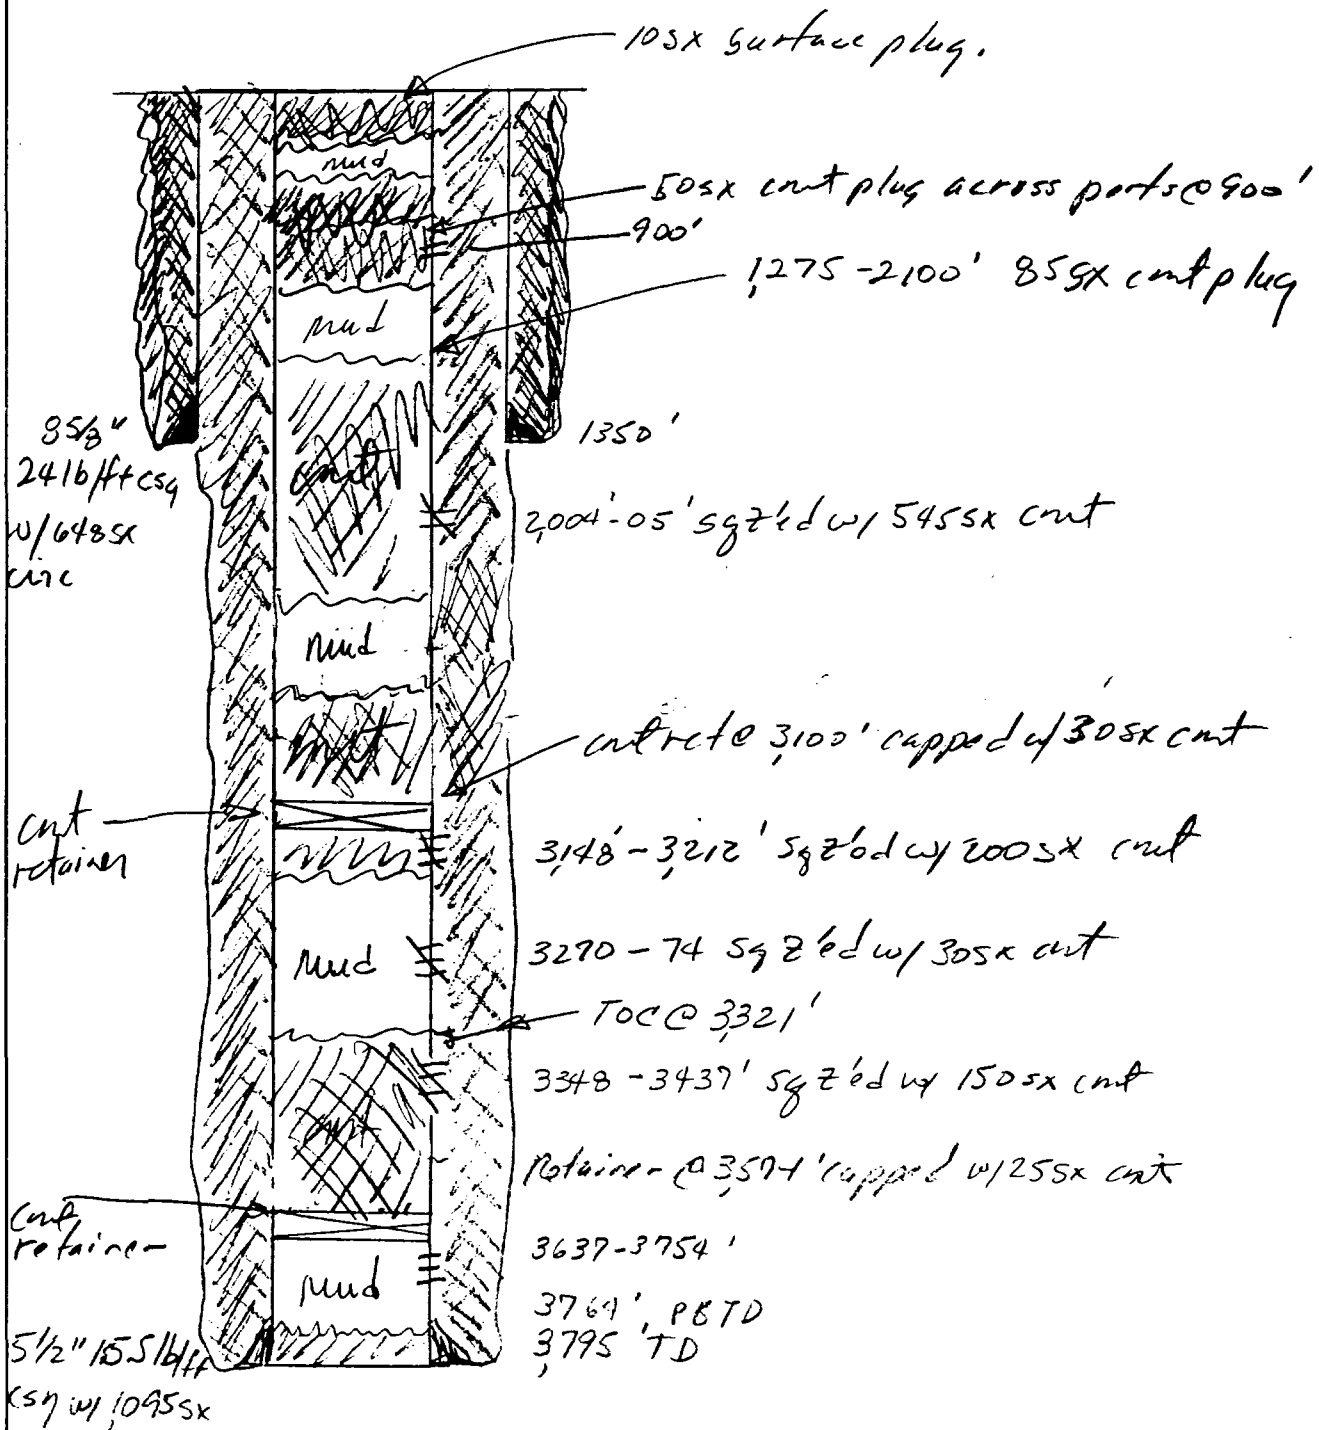 10sx surface plug.
mud
50sx cmt plug across perfs @ 900'
900'
1,275-2100' 85sx cmt plug
mud
8 5/8"
24 lb/ft csg
w/648sx
circ
1350'
cmt
2,004'-05' sqz'ed w/ 545sx cmt
mud
cmt
cmt ret @ 3,100' capped w/ 30sx cmt
cmt
retainer
3,148'-3,212' sqz'ed w/ 200sx cmt
mud
3270-74 sqz'ed w/ 30sx cmt
TOC @ 3,321'
3348-3437' sqz'ed w/ 150sx cmt
cmt
Retainer @ 3,574' capped w/25sx cmt
cmt
retainer
3637-3754'
mud
3764', PBTD
3,795' TD
5 1/2" 15.5 lb/ft
csg w/ 1,095sx